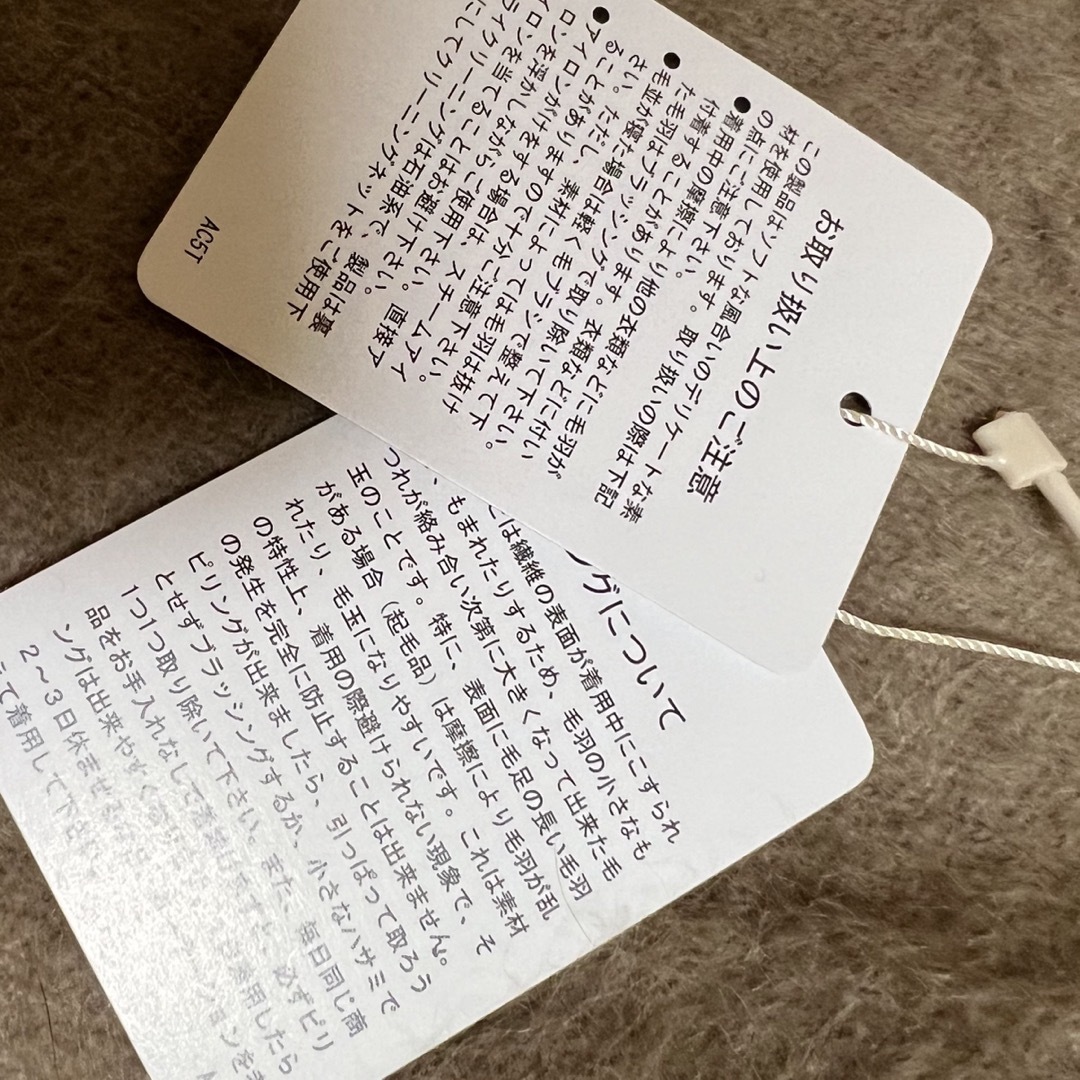 お取り扱い上のご注意
この製品はソフトな風合いのデリケートな素
材を使用しております。取り扱いの際は下記
の点にご注意下さい。
●着用中の摩擦により他の衣類などに毛羽が
付着することがあります。衣類などに付い
た毛羽はブラッシングで取り除いて下さい。
●毛並が寝た場合は軽くモブラシで整えて下
さい。ただし、素材によっては毛羽は抜け
ることがありますので十分ご注意下さい。
●アイロンがけをする場合は、スチームアイ
ロンを浮かしながらご使用下さい。直接ア
イロンを当てることはお避け下さい。
ライクリーニングは石油系で、製品は裏
にしてクリーニングネットをご使用下
AC5T
ングについて
は繊維の表面が着用中にこすられ
、もまれたりするため、毛羽の小さなも
つれが絡み合い次第に大きくなって出来た毛
玉のことです。特に、表面に毛足の長い毛羽
がある場合（起毛品）は摩擦により毛羽が乱
れたり、毛玉になりやすいです。これは素材
の特性上、着用の際避けられない現象で、そ
の発生を完全に防止することは出来ません。
ピリングが出来ましたら、引っぱって取ろう
とせずブラッシングするか、小さなハサミで
1つ1つ取り除いて下さい。また、毎日同じ商
品をお手入れなしで着続けますと、必ずピリ
ングは出来やすく 着用したら
2〜3日休ませ ションを
て着用して下さ